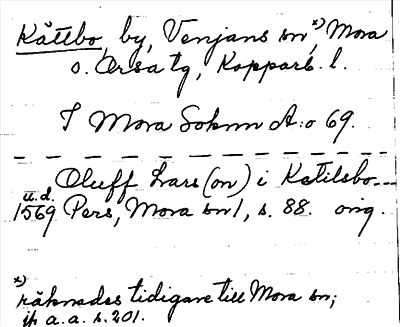 Kättbo, by, Venjans sn, x) Mora
o. Orsa tg, Kopparb. l.
I Mora Soknn A:o 69.
Oluff Lars(on) i Ketilsbo---
u.d.
1569 Pers, Mora sn 1, s. 88. orig.
x)
räknades tidigare till Mora sn;
jfr a.a. s. 201.